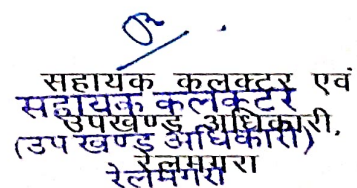 सहायक कलक्टर एवं
सहायक कलक्टर
उपखण्ड अधिकारी,
(उप खण्ड अधिकारी)
रेलमगरा
रेलमगरा